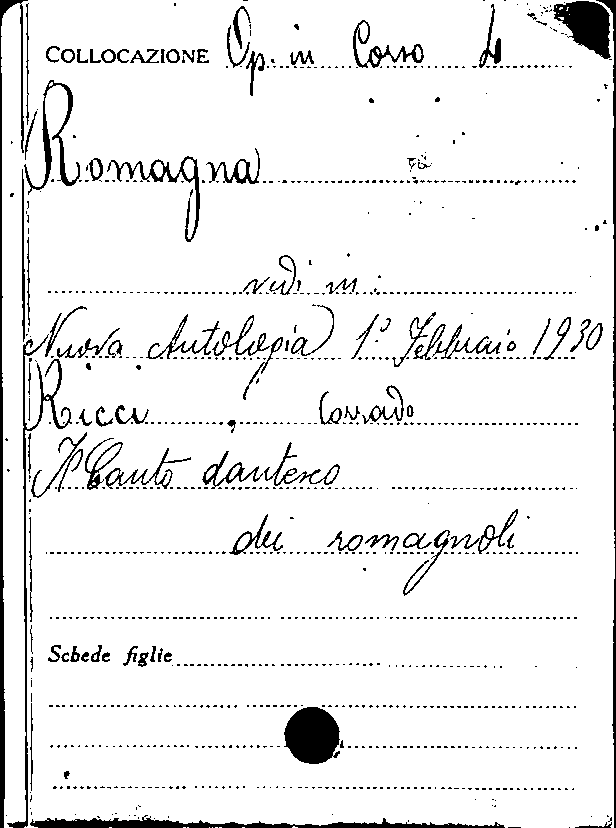 COLLOCAZIONE Op. in Corso 4
Romagna
vedi in:
Nuova Antologia 1° Febbraio 1930
Ricci, Corrado
Il Canto dantesco
dei romagnoli
Schede figlie